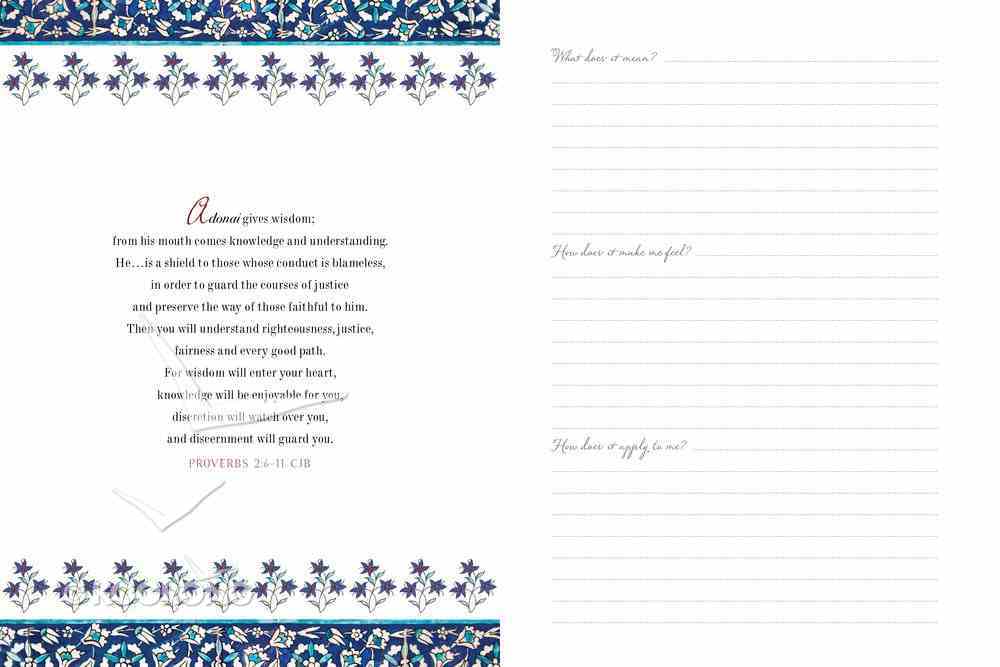 Adonai gives wisdom;
from his mouth comes knowledge and understanding.
He...is a shield to those whose conduct is blameless,
in order to guard the courses of justice
and preserve the way of those faithful to him.
Then you will understand righteousness, justice,
fairness and every good path.
For wisdom will enter your heart,
knowledge will be enjoyable for you,
discretion will watch over you,
and discernment will guard you.
PROVERBS 2:6–11 CJB
KOORONG
What does it mean?
How does it make me feel?
How does it apply to me?